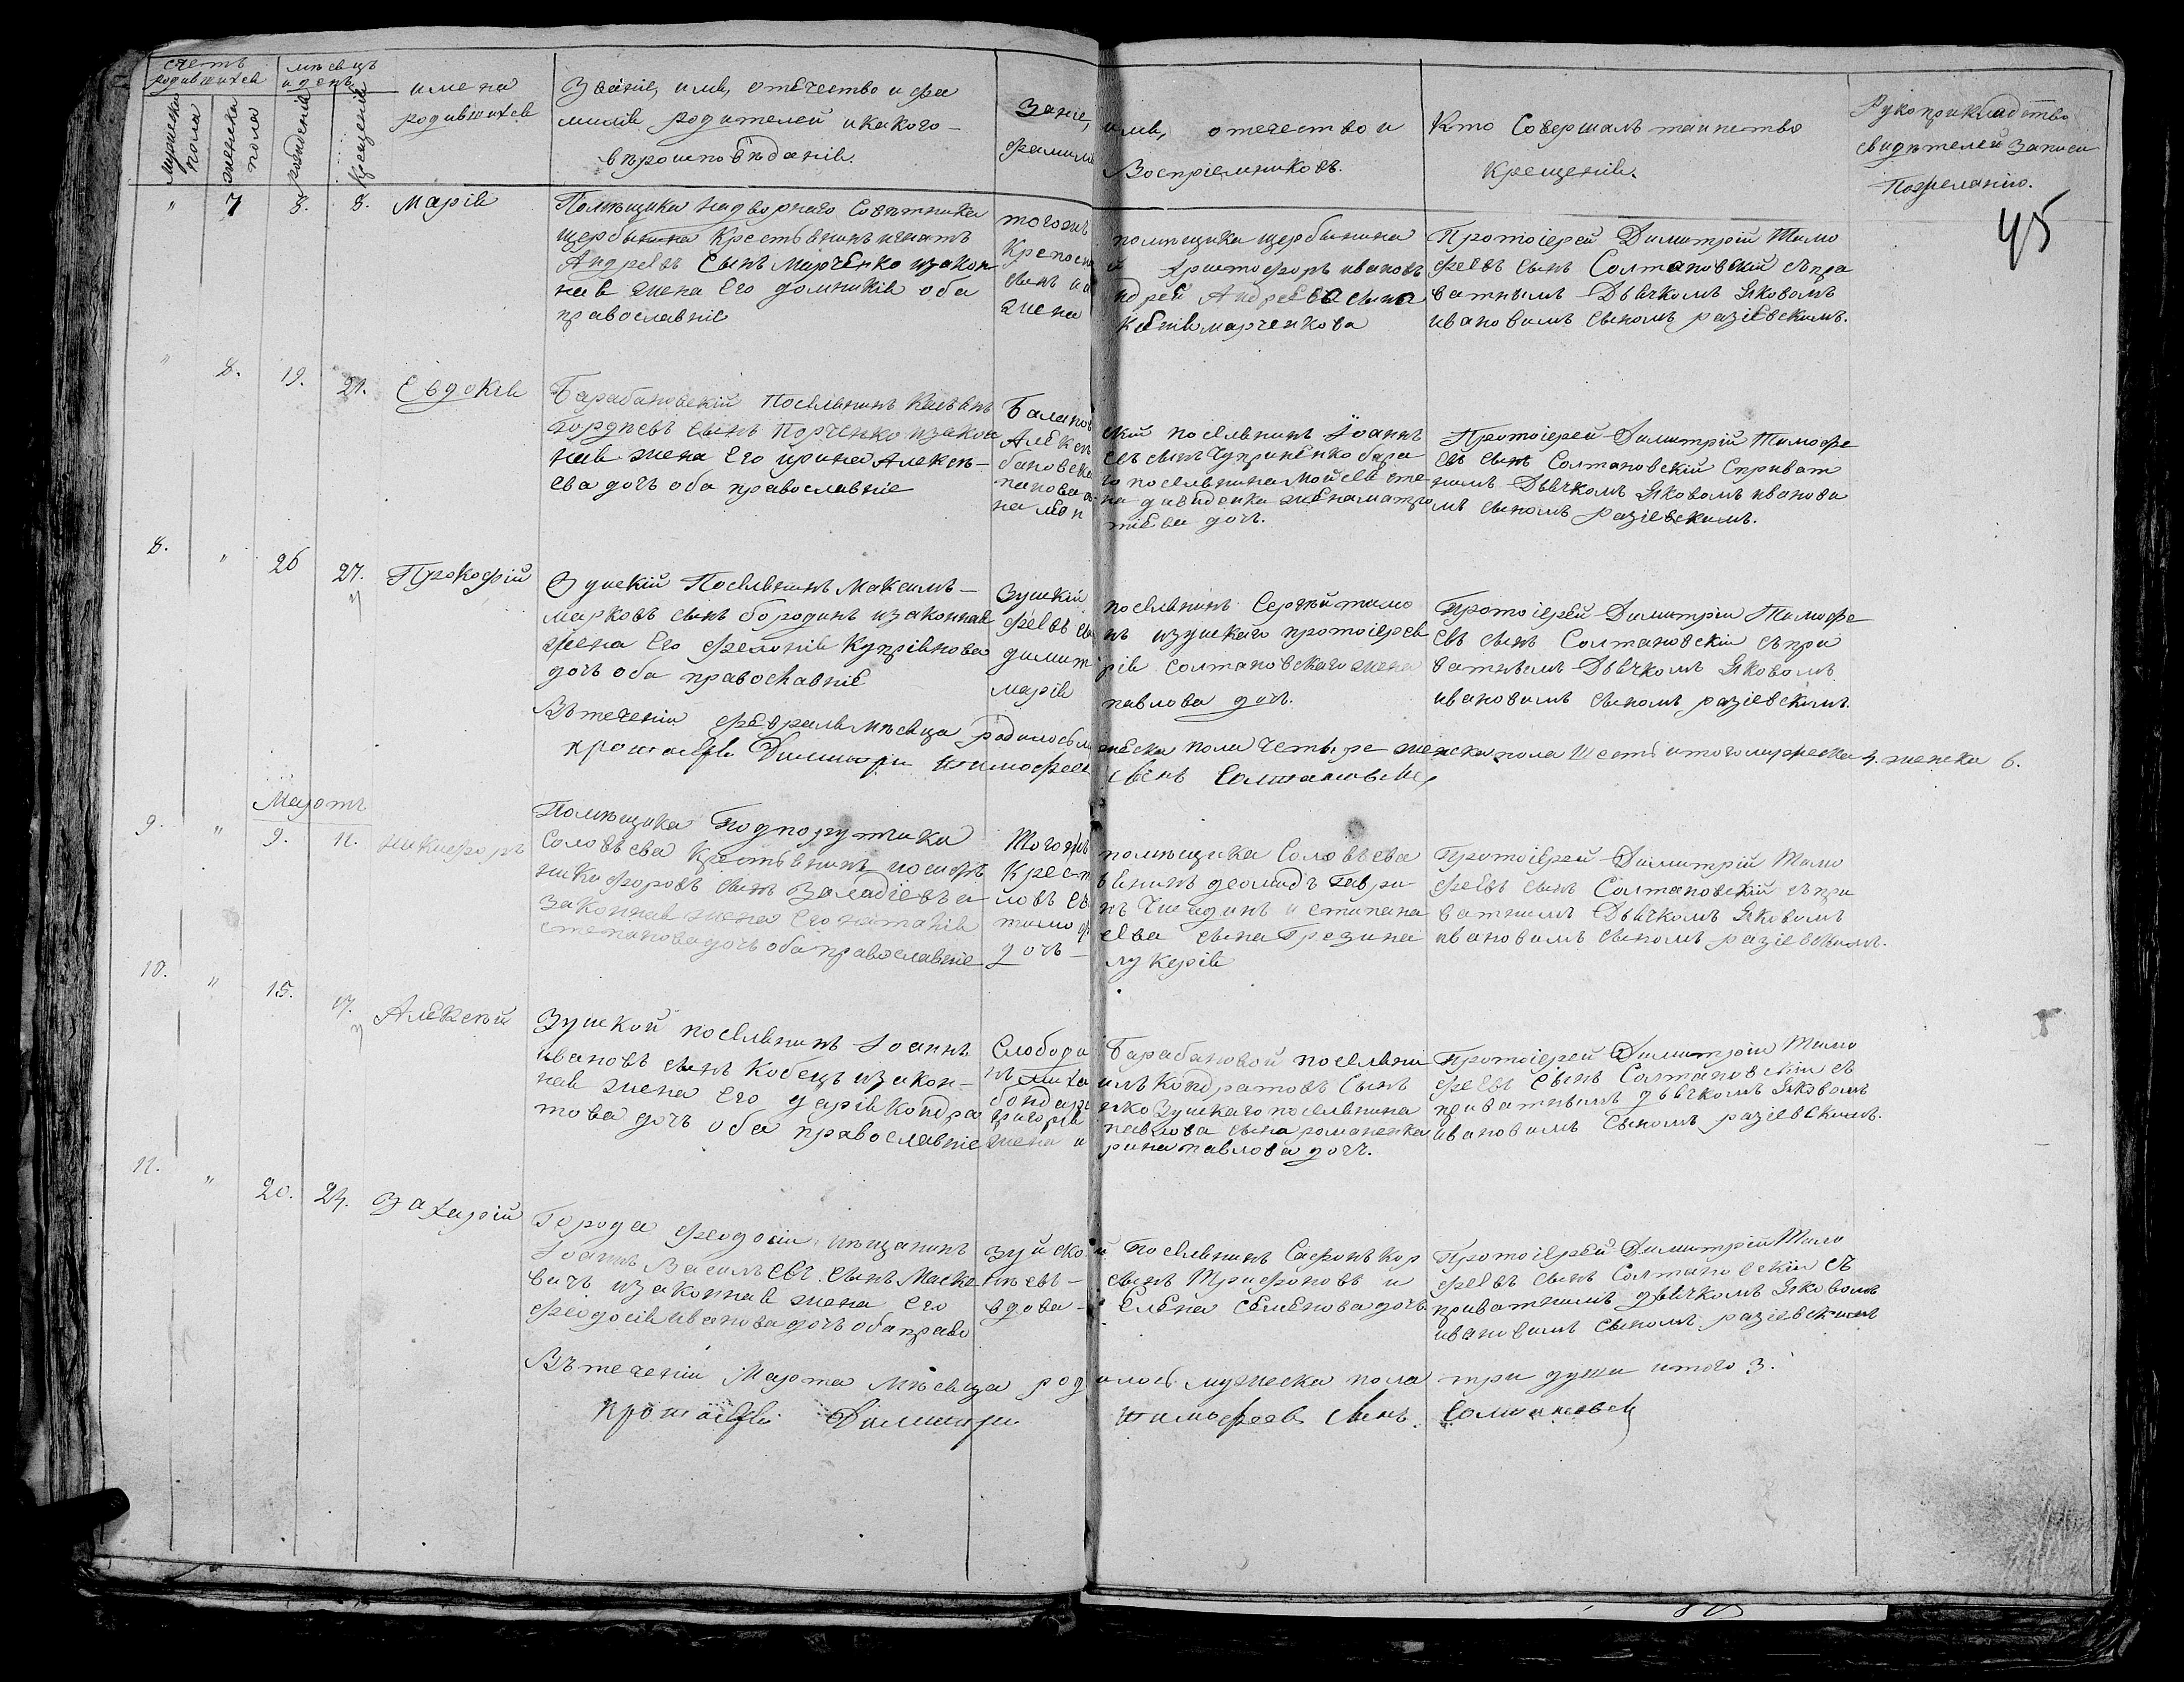 счетъ родившихся
мѣсяцъ и день
мужеска пола
женска пола
рожденія
крещенія
имена
родившихся
Званіе, имя, отечество и фа
милія родителей и какого
вѣроисповѣданія.
Званіе, имя, отечество и
фамилія Воспріемниковъ.
Кто Совершалъ таинство
Крещенія.
Рукоприкладство
свидѣтелей записи
По желанію.
45
" 7 8. 8. Марія
Помѣщика надворнаго Совѣтника
щербинина Крестьянинъ игнатъ
Андреевъ Сынъ Марченко изакон
ная жена Его домникія оба
православніе
тогожъ помѣщика щербинина
Христофоръ ивановъ
сынъ и андрея Андреева сына
жена марченкова
Протоіерей Димитрій Тимо
феевъ сынъ Солтановскій съ при
ватнымъ Дьячкомъ Яковомъ
ивановимъ сыномъ разіевскимъ.
" 8. 19. 21. Евдокія
Барабановскій Поселянинъ
сынъ Порченко изакон
ная жена Его ирина Алексѣ
ева дочъ оба православніе
поселянинъ Іоаннъ
Алексѣевъ сынъ Чуприненко бара
бановскаго поселянина Мойсея сте
панова сына давиденка жена матро
на леонтіева дочъ.
Протоіерей Димитрій Тимофе
евъ сынъ Солтановскій Сприват
нимъ Дьячкомъ Яковомъ иванови
мъ сыномъ разіевскимъ.
8. " 26 27. Прокофій
Зуискій Поселянинъ Максимъ
марковъ сынъ бородинъ изаконная
жена Его феюнія Купріянова
дочъ оба православніе
Зуискій поселянинъ Сергѣй тимо
феевъ сынъ изуискаго протоіерея
димитрія солтановскаго жена
марія павлова дочъ.
Протоіерей Димитрій Тимофе
евъ сынъ Солтановскій съ при
ватнымъ Дьячкомъ Яковомъ
ивановимъ сыномъ разіевскимъ.
Въ теченіи февраля мѣсяца родилось мужеска пола четыре женска пола Шесть итого мужеска 4. женска 6.
протоіерей Димитри тимофеевъ Сынъ Солтановскій
Мартъ
9. " 9. 11. никифоръ
Помѣщика Подпоручика
Соловьева Крестьянинъ иосифъ
никифоровъ сынъ и
законная жена Его наталія
степанова дочъ оба православніе
Тогожъ помѣщика Соловьева
Крестьянинъ деомидъ гаври
ловъ сынъ и степана
тимофеева сына Грезина
дочъ лукерія
Протоіерей Димитрій Тимо
феевъ сынъ Солтановскій съ при
ватнимъ Дьячкомъ Яковомъ
ивановимъ сыномъ разіевскимъ.
10. " 15. 17. Алексѣй
Зуискій поселянинъ Іоаннъ
ивановъ сынъ Кобецъ изакон
ная жена Его дарія Кондра
това дочъ оба православніе
Слободи Барабановой поселяни
нъ михаилъ Кондратовъ Сынъ
бондаренко Зуискаго поселянина
григорія павлова сына романенка
жена ирина павлова дочъ.
Протоіерей Димитрій Тимо
феевъ Сынъ Солтановскій съ
приватнымъ дьячкомъ Яковомъ
ивановимъ Сыномъ разіевскимъ.
11. " 20. 24. Захарій
Города феодосіи мѣщанинъ
Іоаннъ Васильевъ сынъ Маске
вичъ изаконная жена Его
феодосія иванова дочъ оба право
Зуйской Поселянинъ Сафонъ Кор
нѣевъ сынъ Трифоновъ и
вдова Елена Семенова дочъ
Протоіерей Димитрій Тимо
феевъ сынъ Солтановскій съ
приватнимъ дьячкомъ Яковомъ
ивановимъ сыномъ разіевскимъ
Въ теченіи Марта мѣсяца родилось мужеска пола три души итого 3.
протоіерей Димитри тимофеевъ сынъ Солтановскій